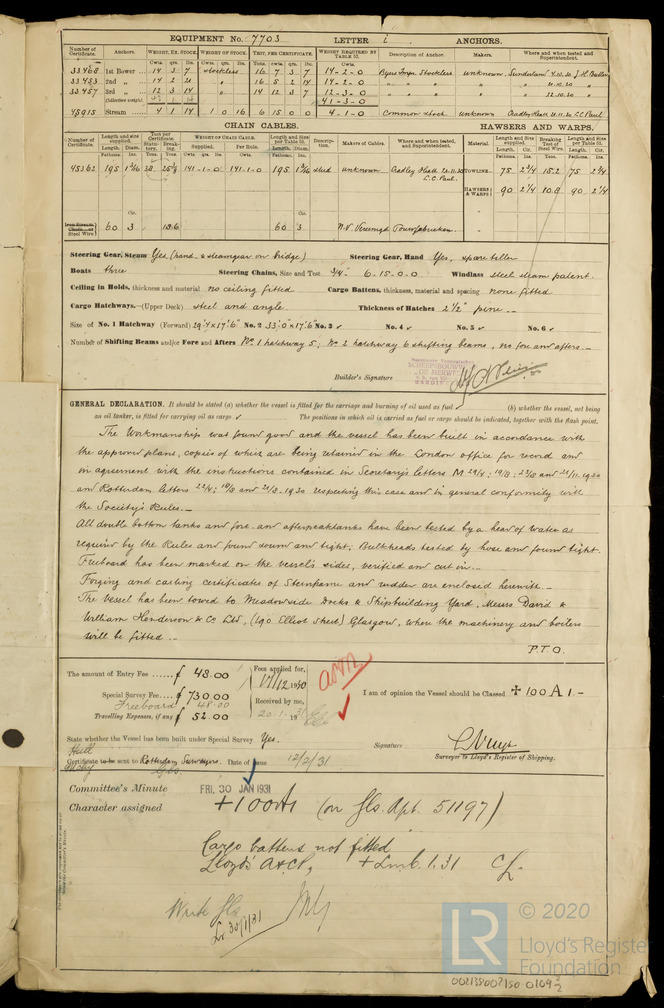 EQUIPMENT No. 7703 LETTER i ANCHORS.
Number of Certificate. Anchors. WEIGHT, EX. STOCK. WEIGHT OF STOCK. TEST, PER CERTIFICATE. WEIGHT REQUIRED BY TABLE 53. Description of Anchor. Makers. Where and when tested and Superintendent.
Cwts. qrs. lbs. Cwts. qrs. lbs. Tons. cwts. qrs. lbs. Cwts.
33468 1st Bower 14 3 7 stockless 16 7 3 7 14-2-0 Byers Impn Stockless unknown Sunderland 4.10.30 J.H. Butler
33453 2nd „ 14 2 21 „ 16 5 2 14 14-2-0 „ „ „ „
33457 3rd „ 12 3 14 „ 14 12 3 7 12-3-0 „ „ „ „ 12.10.30 „
(Collective weight) 41-3-0
45915 Stream 4 1 14 1 0 16 6 15 0 0 4-1-0 Common stock unknown Cradley Heath 21.11.30 L.C. Paul
CHAIN CABLES. HAWSERS AND WARPS.
Number of Certificate. Length and size supplied. Test per Certificate. WEIGHT OF CHAIN CABLE. Length and Size per Table 53. Description. Makers of Cables. Where and when tested, and Superintendent. Material. Length and Size supplied. Breaking Test of Steel Wire. Length and Size per Table 53.
Length. Diam. Statutory. Breaking. Supplied. Per Rule. Length. Diam. Length. Cir. Length. Cir.
Fathoms. Ins. Tons. Tons. Cwts. qrs. lbs. Cwts. qrs. lbs. Fathoms. Ins. Fathoms. Ins. Tons. Fathoms. Ins.
45362 195 141-1-0 141-1-0 195 stud unknown Cradley Heath L.C. Paul. TOWLINE 75 2¼ 15.2 75 2¼
HAWSERS & WARPS 90 2¼ 10.8 90 2¼
Cir. Cir.
Iron Stream Chain or Steel Wire 60 3 13.6 60 3 N.V. Vereenigd Touwfabrieken
Steering Gear, Steam Yes (hand & steamgear on bridge) Steering Gear, Hand Yes, spare tiller
Boats three Steering Chains, Size and Test ¾" 6.15.0.0 Windlass steel steam patent.
Ceiling in Holds, thickness and material no ceiling fitted Cargo Battens, thickness, material and spacing none fitted
Cargo Hatchways.—(Upper Deck) steel and angle. Thickness of Hatches 2½" pine
Size of No. 1 Hatchway (Forward) 29'4 x 17'6" No. 2 33'0" x 17'6" No. 3 ✓ No. 4 ✓ No. 5 ✓ No. 6 ✓
Number of Shifting Beams and/or Fore and Afters No 1 hatchway 5; No 2 hatchway 6 shifting beams, no fore and afters.
SCHEEPSBOUWW.
"DE MERWEDE"
Builder's Signature
GENERAL DECLARATION. It should be stated (a) whether the vessel is fitted for the carriage and burning of oil used as fuel ✓ (b) whether the vessel, not being
an oil tanker, is fitted for carrying oil as cargo ✓ The positions in which oil is carried as fuel or cargo should be indicated, together with the flash point.
The Workmanship was found good and the vessel has been built in accordance with
the approved plans, copies of which are being retained in the London office for record and
in agreement with the instructions contained in Secretary's letters M 29/4; 19/8; 23/8 and 21/11.1930
and Rotterdam letters 22/4; 18/8 and 21/8.1930 respecting this case and in general conformity with
the Society's Rules.
All double bottom tanks and fore- and afterpeaktanks have been tested by a head of water as
required by the Rules and found sound and tight. Bulkheads tested by hose and found tight.
Freeboard has been marked on the vessel's sides, verified and cut in.
Forging and casting certificates of Sternframe and rudder are enclosed herewith.
The vessel has been towed to Meadowside Docks & Shipbuilding Yard, Messrs David &
William Henderson & Co Ltd, (190 Elliot Street) Glasgow, where the machinery and boilers
will be fitted.
P.T.O.
The amount of Entry Fee £ 48.00 Fees applied for, 17/12 1930
Special Survey Fee £ 730.00
Freeboard 48.00 Received by me,
Travelling Expenses, if any £ 52.00 20.1.1931
I am of opinion the Vessel should be Classed ✠ 100 A 1
State whether the Vessel has been built under Special Survey Yes.
Signature
Surveyor to Lloyd's Register of Shipping.
Hull
Certificate to be sent to Rotterdam Surveyors. Date of issue 12/2/31
Mchy Gls.
Committee's Minute FRI. 30 JAN 1931
Character assigned +100A1 (on Gls. Rpt. 51197)
Cargo battens not fitted
Lloyd's A&CP, + LMC 1.31
Write Gls
30/1/31
LR © 2020
Lloyd's Register
Foundation